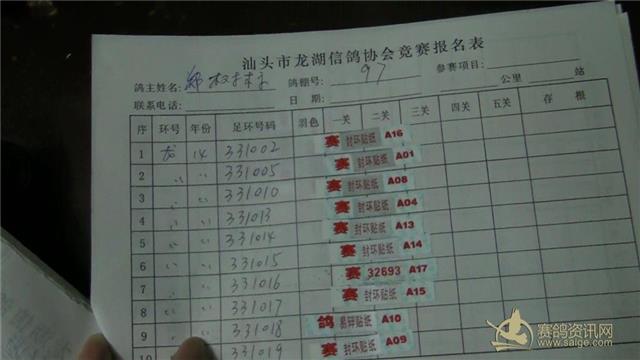 汕头市龙湖信鸽协会竞赛报名表
鸽主姓名: 鸽棚号: 97 参赛项目: 公里 站
联系电话: 日期:
序 环号 年份 足环号码 羽色 一关 二关 三关 四关 五关 存根
1 龙 14 331002 赛 封环贴纸 A16
2 〃 〃 331005 赛 封环贴纸 A01
3 〃 〃 331010 赛 封环贴纸 A08
4 〃 〃 331013 赛 封环贴纸 A04
5 〃 〃 331014 赛 封环贴纸 A13
6 〃 〃 331015 赛 封环贴纸 A14
7 〃 〃 331016 赛 32693 A17
8 〃 〃 331017 赛 封环贴纸 A15
9 〃 〃 331018 鸽 易碎贴纸 A10
10 331019 赛 封环贴纸 A09
赛鸽资讯网
www.saige.com